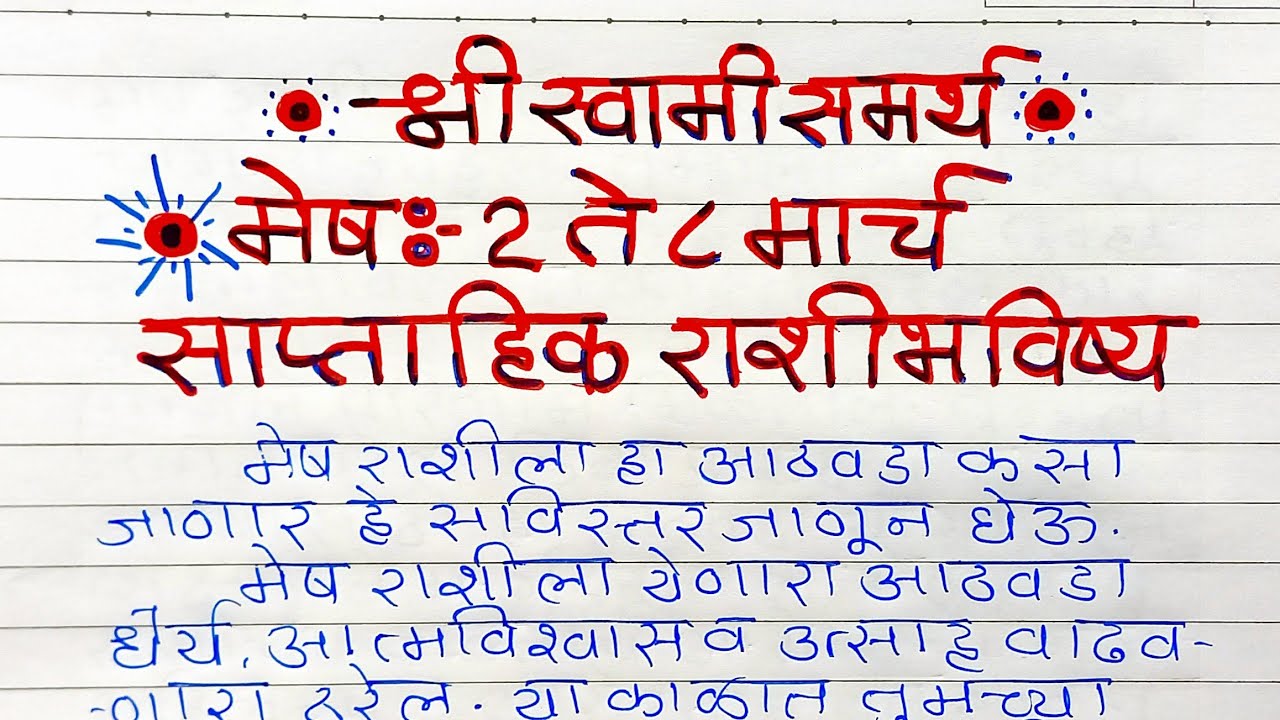 श्री स्वामी समर्थ
मेष:- 2 ते ८ मार्च
साप्ताहिक राशीभविष्य
मेष राशीला हा आठवडा कसा
जाणार हे सविस्तर जाणून घेऊ.
मेष राशीला येणारा आठवडा
धैर्य, आत्मविश्वास व उत्साह वाढव-
-णारा ठरेल. या काळात तुमच्या